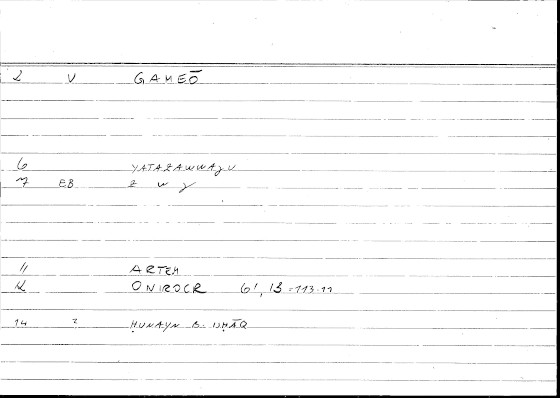 2 V GAMEŌ
6 YATAZAWWAǧU
7 EB z w ǧ
11 ARTEM
12 ONIROCR 61, 13 = 113.11
14 ? ḤUNAYN B. ISḤĀQ